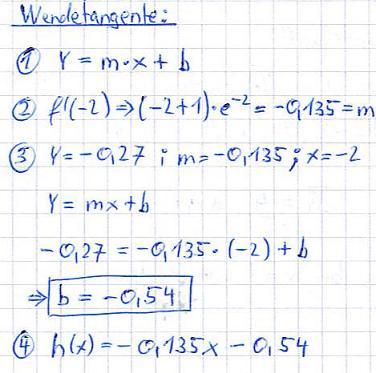 Wendetangente:
① Y = m·x + b
② f'(-2) ⇒ (-2+1)·e⁻² = -0,135 = m
③ Y = -0,27 ; m = -0,135 ; x = -2
Y = mx + b
-0,27 = -0,135·(-2) + b
⇒ b = -0,54
④ h(x) = -0,135x - 0,54